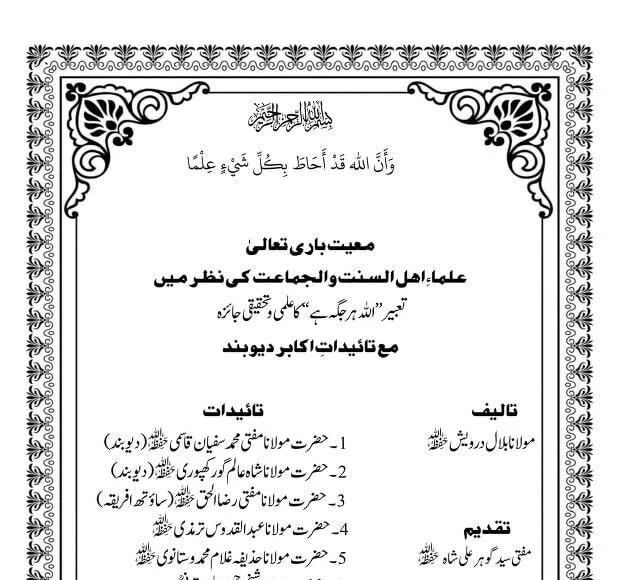 بسم الله الرحمن الرحيم
وَأَنَّ الله قَدْ أَحَاطَ بِكُلِّ شَيْءٍ عِلْمًا
معیت باری تعالیٰ
علماءِ اهل السنت والجماعت کی نظر میں
تعبیر ”اللہ ہر جگہ ہے“ کا علمی و تحقیقی جائزہ
مع تائیداتِ اکابر دیوبند
تالیف
مولانا بلال درویش حفظہ اللہ
تقدیم
مفتی سید گوہر علی شاہ حفظہ اللہ
تائیدات
1۔ حضرت مولانا مفتی محمد سفیان قاسمی حفظہ اللہ (دیوبند)
2۔ حضرت مولانا شاہ عالم گورکھپوری حفظہ اللہ (دیوبند)
3۔ حضرت مولانا مفتی رضاء الحق حفظہ اللہ (ساؤتھ افریقہ)
4۔ حضرت مولانا عبدالقدوس ترمذی حفظہ اللہ
5۔ حضرت مولانا حذیفہ غلام محمد وستانوی حفظہ اللہ